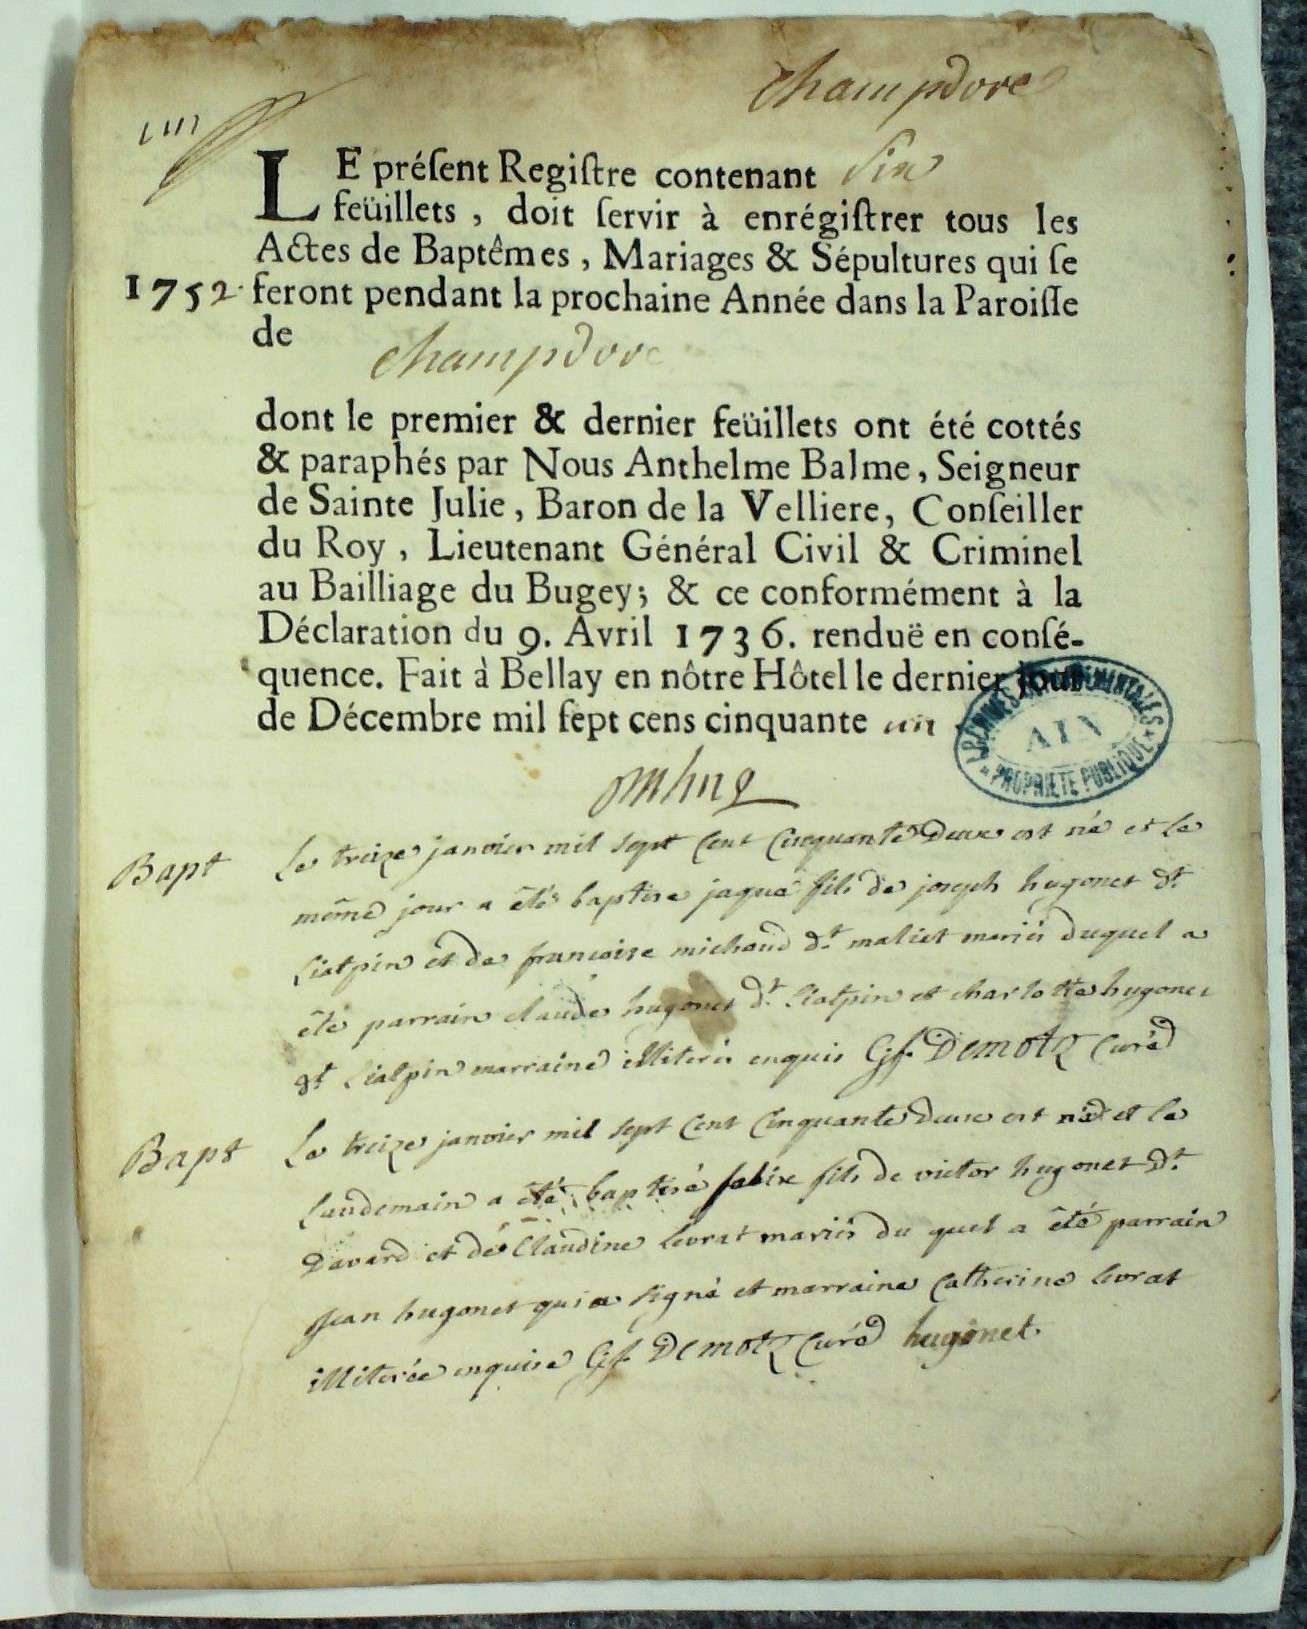 Champdore
LE préſent Regiſtre contenant Six
feüillets, doit ſervir à enrégiſtrer tous les
Actes de Baptêmes, Mariages & Sépultures qui ſe
1752. feront pendant la prochaine Année dans la Paroiſſe
de
champdore
dont le premier & dernier feüillets ont été cottés
& paraphés par Nous Anthelme Balme, Seigneur
de Sainte Julie, Baron de la Velliere, Conſeiller
du Roy, Lieutenant Général Civil & Criminel
au Bailliage du Bugey; & ce conformément à la
Déclaration du 9. Avril 1736. renduë en conſé-
quence. Fait à Bellay en nôtre Hôtel le dernier jour
de Décembre mil ſept cens cinquante un
ARCHIVES DÉPARTEMENTALES
AIN
* PROPRIÉTÉ PUBLIQUE *
Bapt Le treize janvier mil sept Cent Cinquante Deux est né et le
même jour a été baptisé jaque fils de joseph hugonet dt
Lialpin et de francoise michaud dt maliet mariés duquel a
été parrain claude hugonet dt Lialpin et charlotte hugonet
dt Lialpin marraine illiterés enquis Demotz Curé
Bapt Le treize janvier mil sept Cent Cinquante deux est né et le
Landemain a été baptisé felix fils de victor hugonet dt
Davard et de Claudine levrat mariés du quel a été parrain
jean hugonet qui a signé et marraine Catherine levrat
illiterée enquise Demotz Curé hugonet.